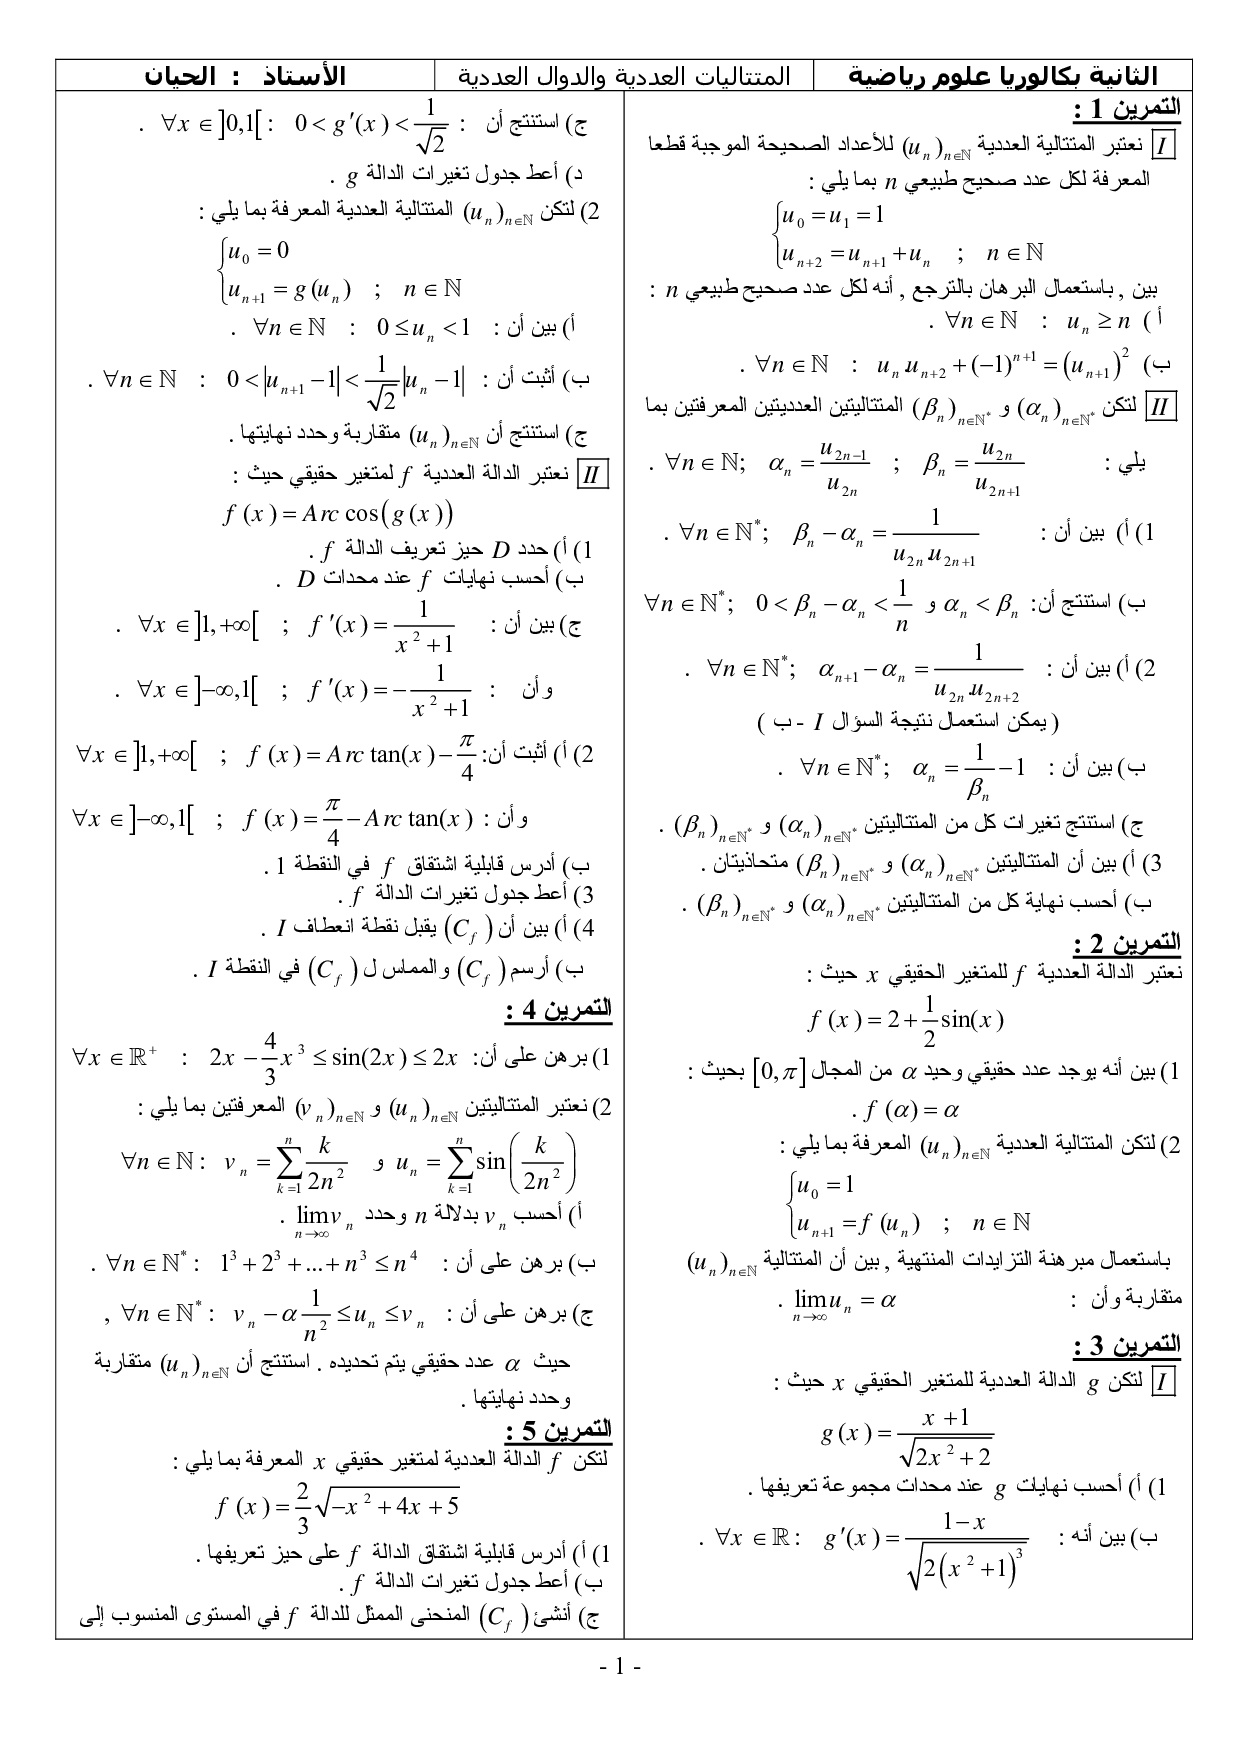 الثانية بكالوريا علوم رياضية
المتتاليات العددية والدوال العددية
الأستاذ : الحيان
التمرين 1 :
I نعتبر المتتالية العددية (u_n)_{n∈ℕ} للأعداد الصحيحة الموجبة قطعا
المعرفة لكل عدد صحيح طبيعي n بما يلي :
{ u_0 = u_1 = 1
{ u_{n+2} = u_{n+1} + u_n ; n ∈ ℕ
بين , باستعمال البرهان بالترجع , أنه لكل عدد صحيح طبيعي n :
أ ) ∀n ∈ ℕ : u_n ≥ n .
ب) ∀n ∈ ℕ : u_n.u_{n+2} + (−1)^{n+1} = (u_{n+1})^2 .
II لتكن (α_n)_{n∈ℕ*} و (β_n)_{n∈ℕ*} المتتاليتين العدديتين المعرفتين بما
يلي : ∀n ∈ ℕ; α_n = u_{2n−1}/u_{2n} ; β_n = u_{2n}/u_{2n+1} .
1) أ) بين أن : ∀n ∈ ℕ*; β_n − α_n = 1/(u_{2n}.u_{2n+1}) .
ب) استنتج أن: α_n < β_n و ∀n ∈ ℕ*; 0 < β_n − α_n < 1/n
2) أ) بين أن : ∀n ∈ ℕ*; α_{n+1} − α_n = 1/(u_{2n}.u_{2n+2}) .
( يمكن استعمال نتيجة السؤال I - ب )
ب) بين أن : ∀n ∈ ℕ*; α_n = 1/β_n − 1 .
ج) استنتج تغيرات كل من المتتاليتين (α_n)_{n∈ℕ*} و (β_n)_{n∈ℕ*} .
3) أ) بين أن المتتاليتين (α_n)_{n∈ℕ*} و (β_n)_{n∈ℕ*} متحاذيتان .
ب) أحسب نهاية كل من المتتاليتين (α_n)_{n∈ℕ*} و (β_n)_{n∈ℕ*} .
التمرين 2 :
نعتبر الدالة العددية f للمتغير الحقيقي x حيث :
f(x) = 2 + 1/2 sin(x)
1) بين أنه يوجد عدد حقيقي وحيد α من المجال [0,π] بحيث :
f(α) = α .
2) لتكن المتتالية العددية (u_n)_{n∈ℕ} المعرفة بما يلي :
{ u_0 = 1
{ u_{n+1} = f(u_n) ; n ∈ ℕ
باستعمال مبرهنة التزايدات المنتهية , بين أن المتتالية (u_n)_{n∈ℕ}
متقاربة وأن : lim_{n→∞} u_n = α .
التمرين 3 :
I لتكن g الدالة العددية للمتغير الحقيقي x حيث :
g(x) = (x+1)/√(2x^2+2)
1) أ) أحسب نهايات g عند محدات مجموعة تعريفها .
ب) بين أنه : ∀x ∈ ℝ : g'(x) = (1−x)/√(2(x^2+1)^3) .
ج) استنتج أن : ∀x ∈ ]0,1[ : 0 < g'(x) < 1/√2 .
د) أعط جدول تغيرات الدالة g .
2) لتكن (u_n)_{n∈ℕ} المتتالية العددية المعرفة بما يلي :
{ u_0 = 0
{ u_{n+1} = g(u_n) ; n ∈ ℕ
أ) بين أن : ∀n ∈ ℕ : 0 ≤ u_n < 1 .
ب) أثبت أن : ∀n ∈ ℕ : 0 < |u_{n+1} − 1| < 1/√2 |u_n − 1| .
ج) استنتج أن (u_n)_{n∈ℕ} متقاربة وحدد نهايتها .
II نعتبر الدالة العددية f لمتغير حقيقي حيث :
f(x) = Arc cos(g(x))
1) أ) حدد D حيز تعريف الدالة f .
ب) أحسب نهايات f عند محدات D .
ج) بين أن : ∀x ∈ ]1,+∞[ ; f'(x) = 1/(x^2+1) .
وأن : ∀x ∈ ]−∞,1[ ; f'(x) = −1/(x^2+1) .
2) أ) أثبت أن: ∀x ∈ ]1,+∞[ ; f(x) = Arc tan(x) − π/4
وأن : ∀x ∈ ]−∞,1[ ; f(x) = π/4 − Arc tan(x)
ب) أدرس قابلية اشتقاق f في النقطة 1 .
3) أعط جدول تغيرات الدالة f .
4) أ) بين أن (C_f) يقبل نقطة انعطاف I .
ب) أرسم (C_f) والمماس ل (C_f) في النقطة I .
التمرين 4 :
1) برهن على أن: ∀x ∈ ℝ⁺ : 2x − 4/3 x^3 ≤ sin(2x) ≤ 2x
2) نعتبر المتتاليتين (u_n)_{n∈ℕ} و (v_n)_{n∈ℕ} المعرفتين بما يلي :
∀n ∈ ℕ : v_n = ∑_{k=1}^{n} k/(2n^2) و u_n = ∑_{k=1}^{n} sin(k/(2n^2))
أ) أحسب v_n بدلالة n وحدد lim_{n→∞} v_n .
ب) برهن على أن : ∀n ∈ ℕ* : 1^3 + 2^3 + ... + n^3 ≤ n^4 .
ج) برهن على أن : ∀n ∈ ℕ* : v_n − α 1/n^2 ≤ u_n ≤ v_n ,
حيث α عدد حقيقي يتم تحديده . استنتج أن (u_n)_{n∈ℕ} متقاربة
وحدد نهايتها .
التمرين 5 :
لتكن f الدالة العددية لمتغير حقيقي x المعرفة بما يلي :
f(x) = 2/3 √(−x^2+4x+5)
1) أ) أدرس قابلية اشتقاق الدالة f على حيز تعريفها .
ب) أعط جدول تغيرات الدالة f .
ج) أنشئ (C_f) المنحنى الممثل للدالة f في المستوى المنسوب إلى
- 1 -